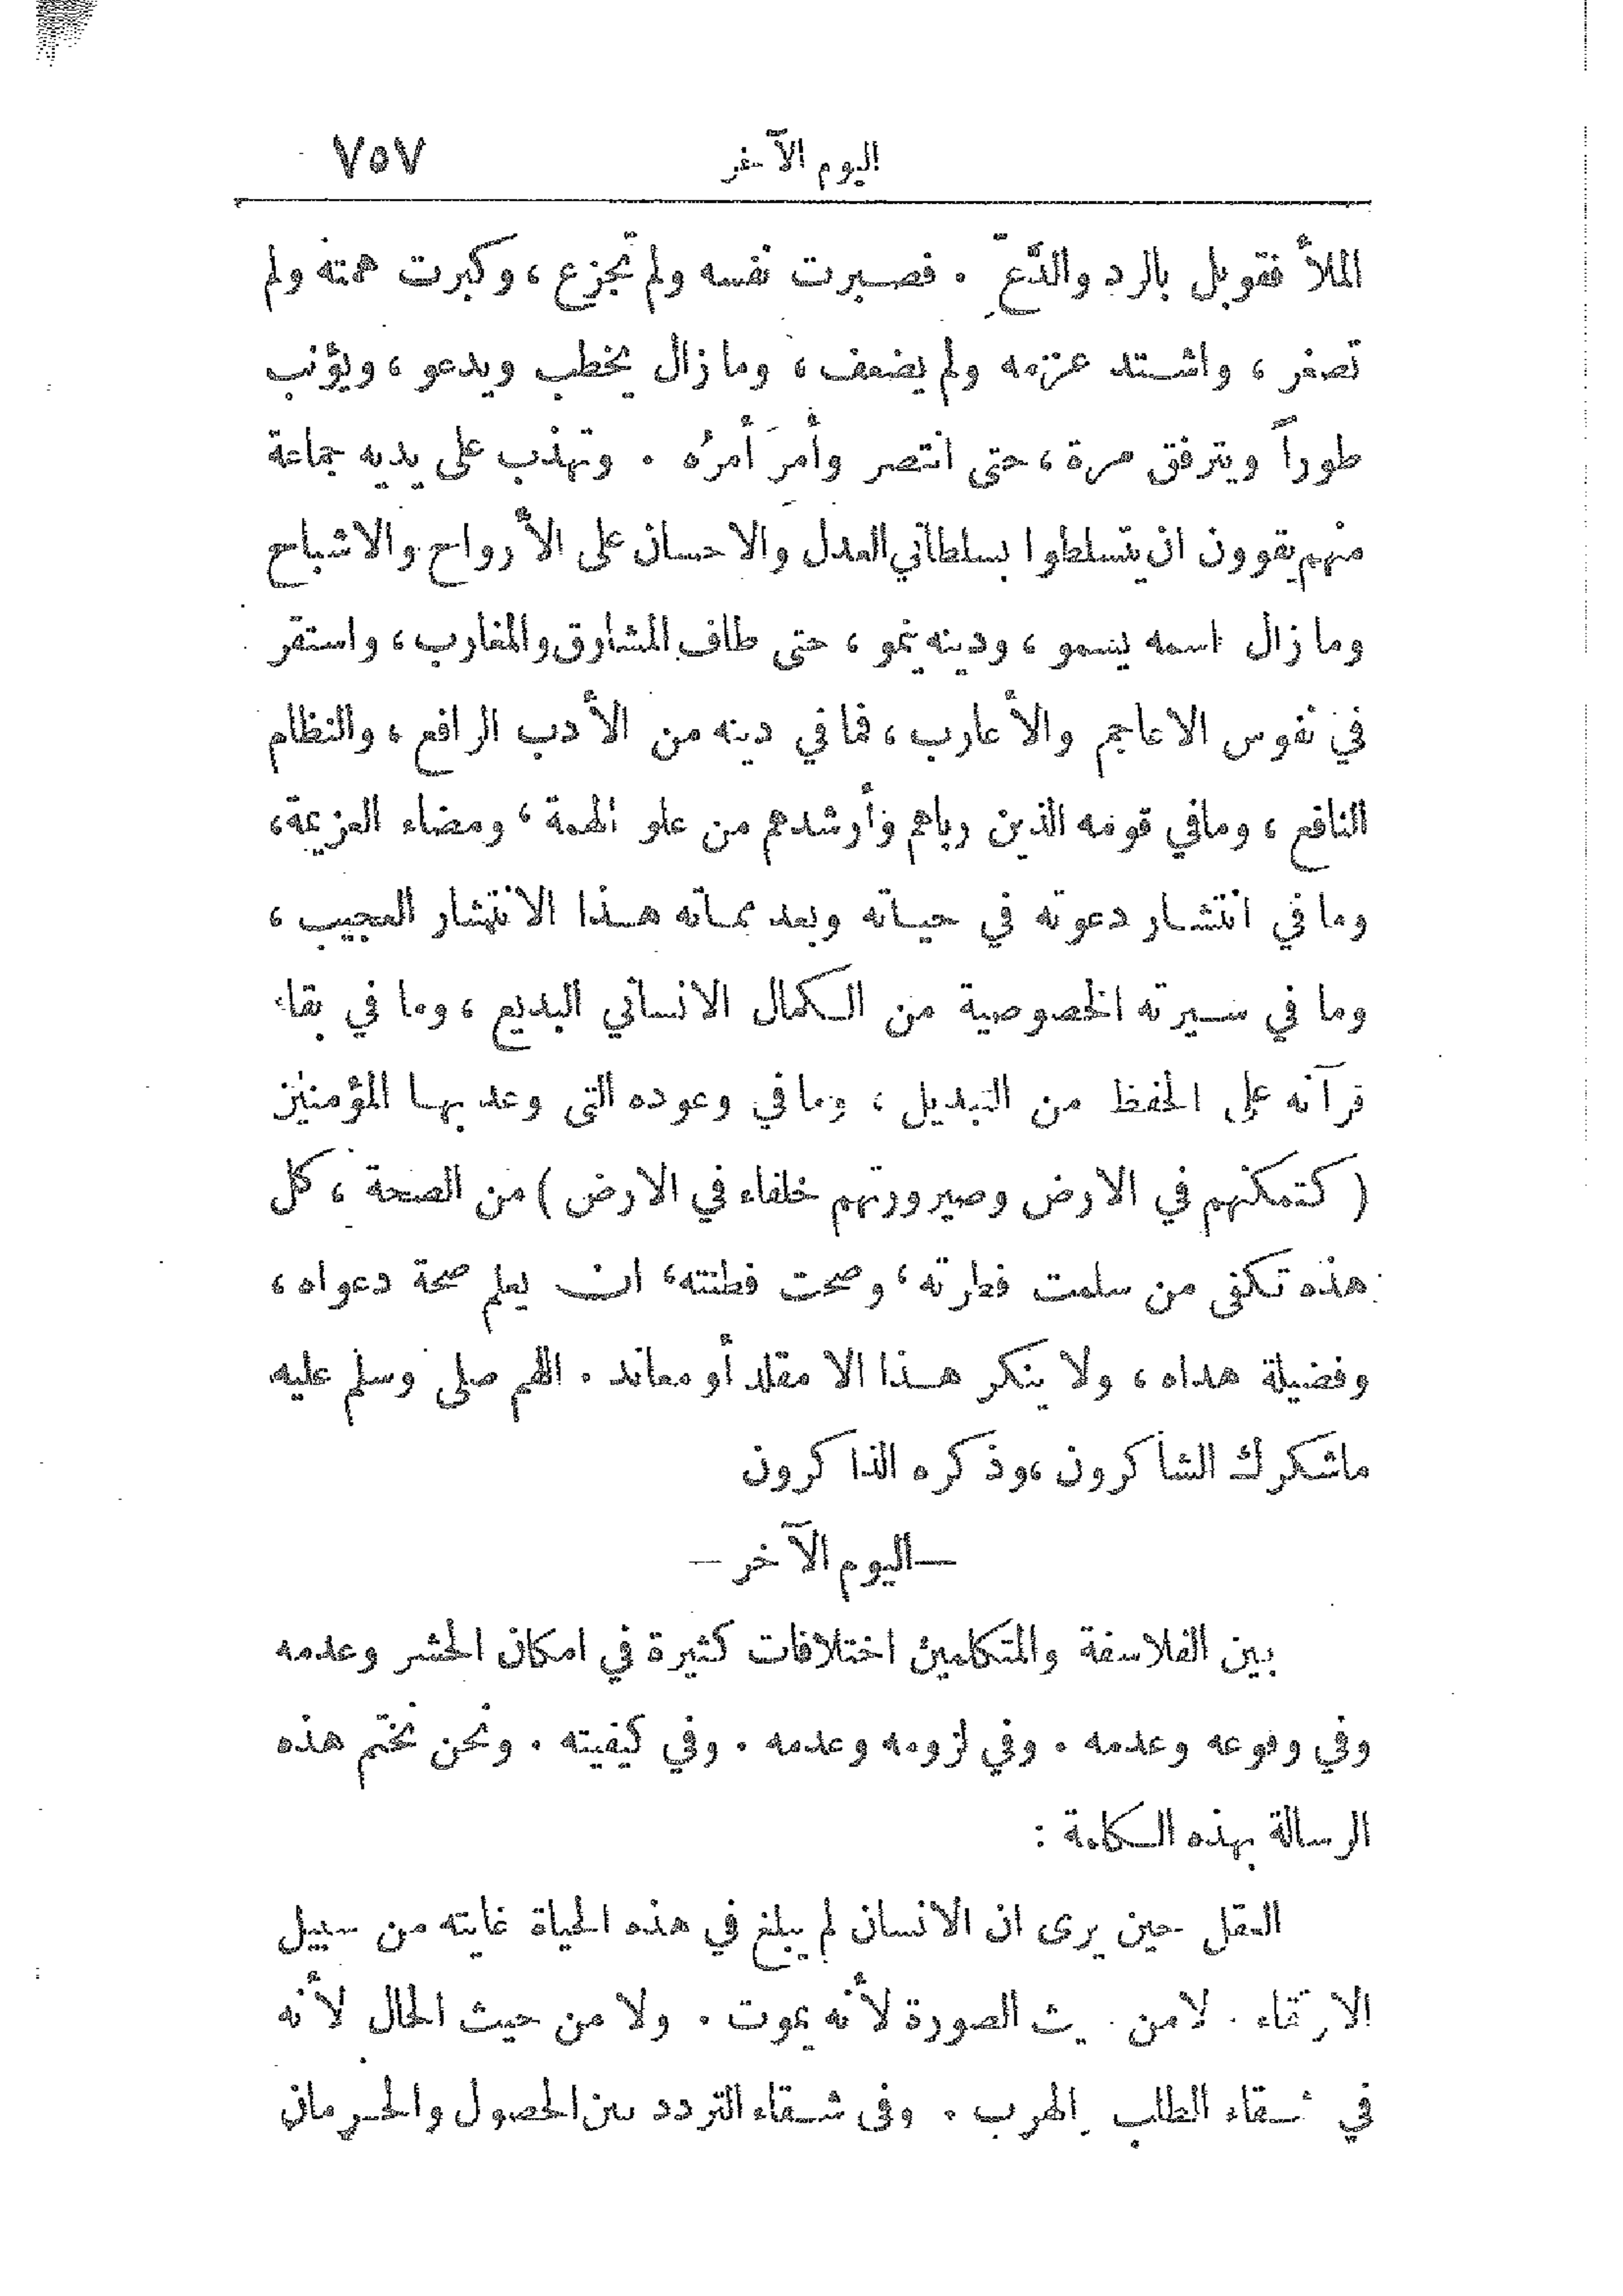 اليوم الآخر ٧٥٧
الملأ فقوبل بالرد والدَّعّ . فصبرت نفسه ولم تجزع ، وكبرت همته ولم
تصغر ، واشتد عزمه ولم يضعف ، وما زال يخطب ويدعو ، ويؤنب
طوراً ويترفق مرة ، حتى انتصر وأَمرَ أمرُه . وتهذب على يديه جماعة
منهم يقوون ان يتسلطوا بسلطاني العدل والاحسان على الأرواح والاشباح
وما زال اسمه يسمو ، ودينه ينمو ، حتى طاف المشارق والمغارب ، واستقر
في نفوس الاعاجم والأعارب ، فما في دينه من الأدب الرافع ، والنظام
النافع ، وما في قومه الذين رباهم وأرشدهم من علو الهمة ، ومضاء العزيمة ،
وما في انتشار دعوته في حياته وبعد مماته هذا الانتشار العجيب ،
وما في سيرته الخصوصية من الكمال الانساني البديع ، وما في بقاء
قرآنه على الحفظ من التبديل ، وما في وعوده التي وعد بها المؤمنين
( كتمكنهم في الارض وصيرورتهم خلفاء في الارض ) من الصحة ، كل
هذه تكفي من سلمت فطرته ، وصحت فطنته ، ان يعلم صحة دعواه ،
وفضيلة هداه ، ولا ينكر هذا الا مقلد أو معاند . اللهم صلى وسلم عليه
ما شكرك الشاكرون ، وذكره الذاكرون
— اليوم الآخر —
بين الفلاسفة والمتكلمين اختلافات كثيرة في امكان الحشر وعدمه
وفي وقوعه وعدمه . وفي لزومه وعدمه . وفي كيفيته . ونحن نختم هذه
الرسالة بهذه الكلمة :
العقل حين يرى ان الانسان لم يبلغ في هذه الحياة غايته من سبيل
الارتقاء . لا من الصورة لأنه يموت . ولا من حيث الحال لأنه
في شقاء الطلب والهرب . وفي شقاء التردد بين الحصول والحرمان